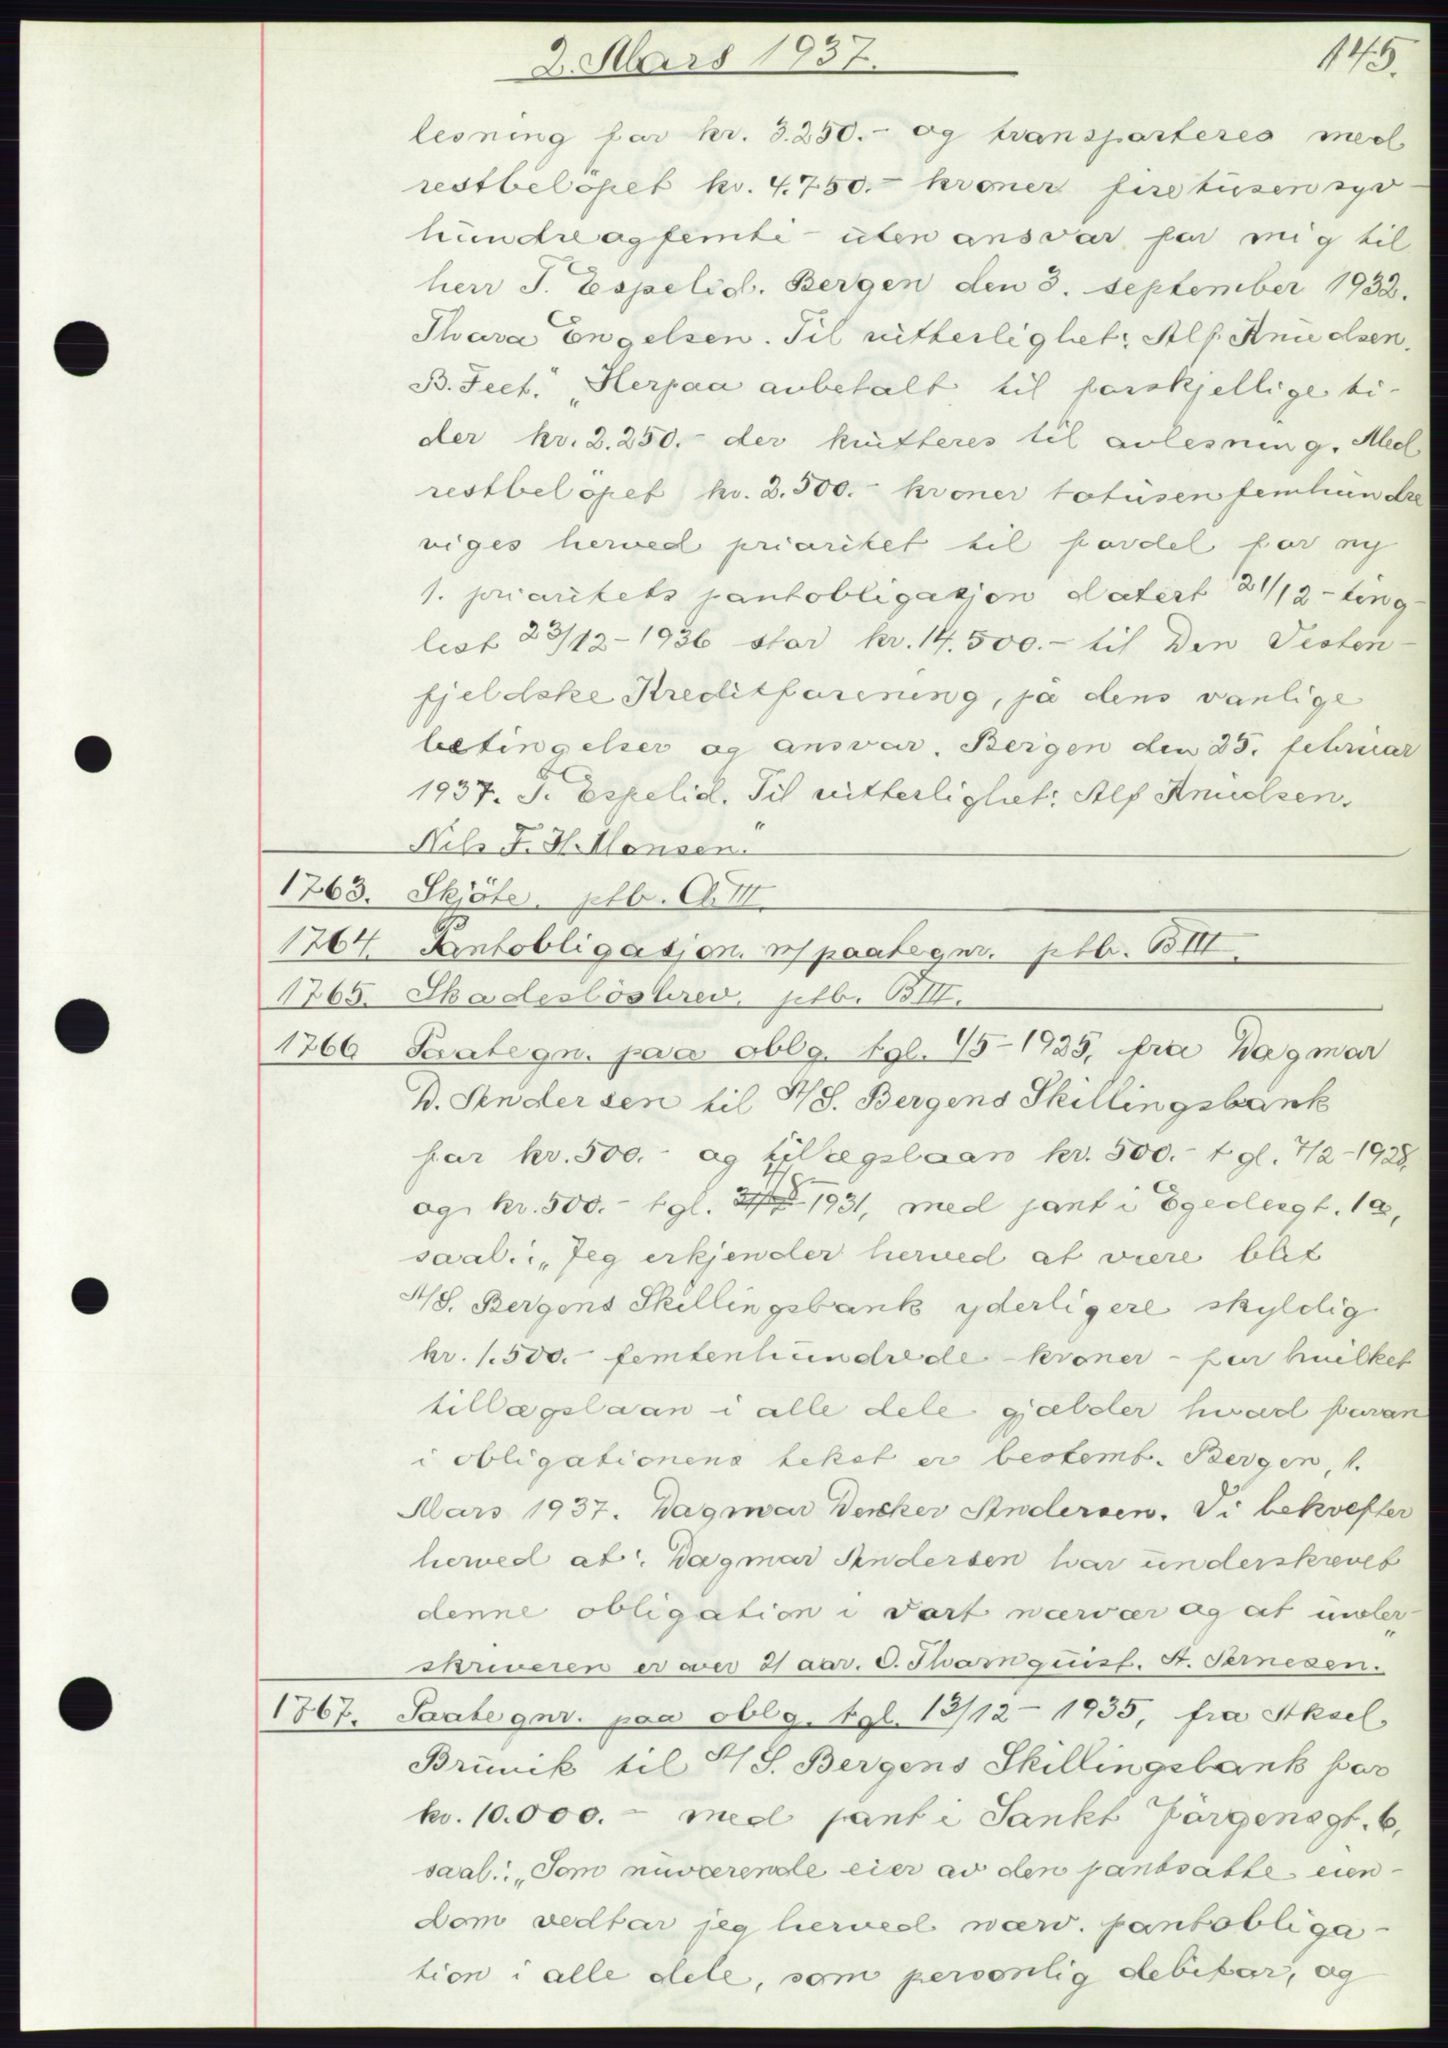 2. Mars 1937.
145.
lesning for kr. 3.250.- og transporteres med
restbelöpet kr. 4.750.- kroner firetusensyv-
hundreogfemti - uten ansvar for mig til
herr T. Espelid. Bergen den 3. september 1932.
Thora Engelsen. Til vitterlighet: Alf Knudsen.
B. Feet." "Herpaa avbetalt til forskjellige ti-
der kr. 2.250.- der kvitteres til avlesning. Med
restbelöpet kr. 2.500.- kroner totusenfemhundre
viges herved prioritet til fordel for ny
1. prioritets pantobligasjon datert 21/12 - ting-
lest 23/12 - 1936 stor kr. 14.500.- til Den Vesten-
fjeldske Kreditforening, på dens vanlige
betingelser og ansvar. Bergen den 25. februar
1937. T. Espelid. Til vitterlighet: Alf Knudsen.
Nils F. H. Monsen."
1763. Skjöte. ptb. A III.
1764. Pantobligasjon. m/paategnr. ptb. B III.
1765. Skadeslösbrev. ptb. B III.
1766 Paategn. paa oblg. tgl. 1/5 - 1925, fra Dagmar
D. Andersen til A/S. Bergens Skillingsbank
for kr. 500.- og tillægslaan kr. 500.- tgl. 7/2 - 1928,
og kr. 500.- tgl. 1931, med pant i Egedesgt. 1a,
saal.: "Jeg erkjender herved at være blit
A/S. Bergens Skillingsbank yderligere skyldig
kr. 1.500.- femtenhundrede - kroner - for hvilket
tillægslaan i alle dele gjælder hvad foran
i obligationens tekst er bestemt. Bergen, 1.
Mars 1937. Dagmar Decker Andersen. Vi bekrefter
herved at: Dagmar Andersen har underskrevet
denne obligation i vort nærvær og at under-
skriveren er over 21 aar. O. Thornquist. A. Ternesen."
1767. Paategnr. paa oblg. tgl. 13/12 - 1935, fra Aksel
Brunik til A/S. Bergens Skillingsbank for
kr. 10.000.- med pant i Sankt Jörgensgt. 6,
saal.: "Som nuværende eier av den pantsatte eien-
dom vedtar jeg herved nærv. pantobliga-
tion i alle dele, som personlig debitor, og